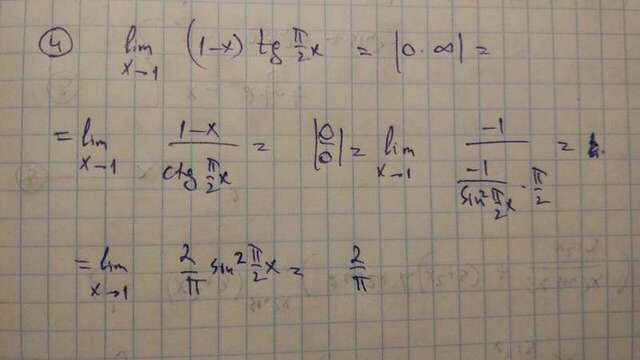 ④ lim x→1 (1-x) tg π/2 x = |0·∞| =
= lim x→1 (1-x)/(ctg π/2 x) = |0/0| = lim x→1 (-1)/((-1)/(sin² π/2 x) · π/2) =
= lim x→1 2/π sin² π/2 x = 2/π